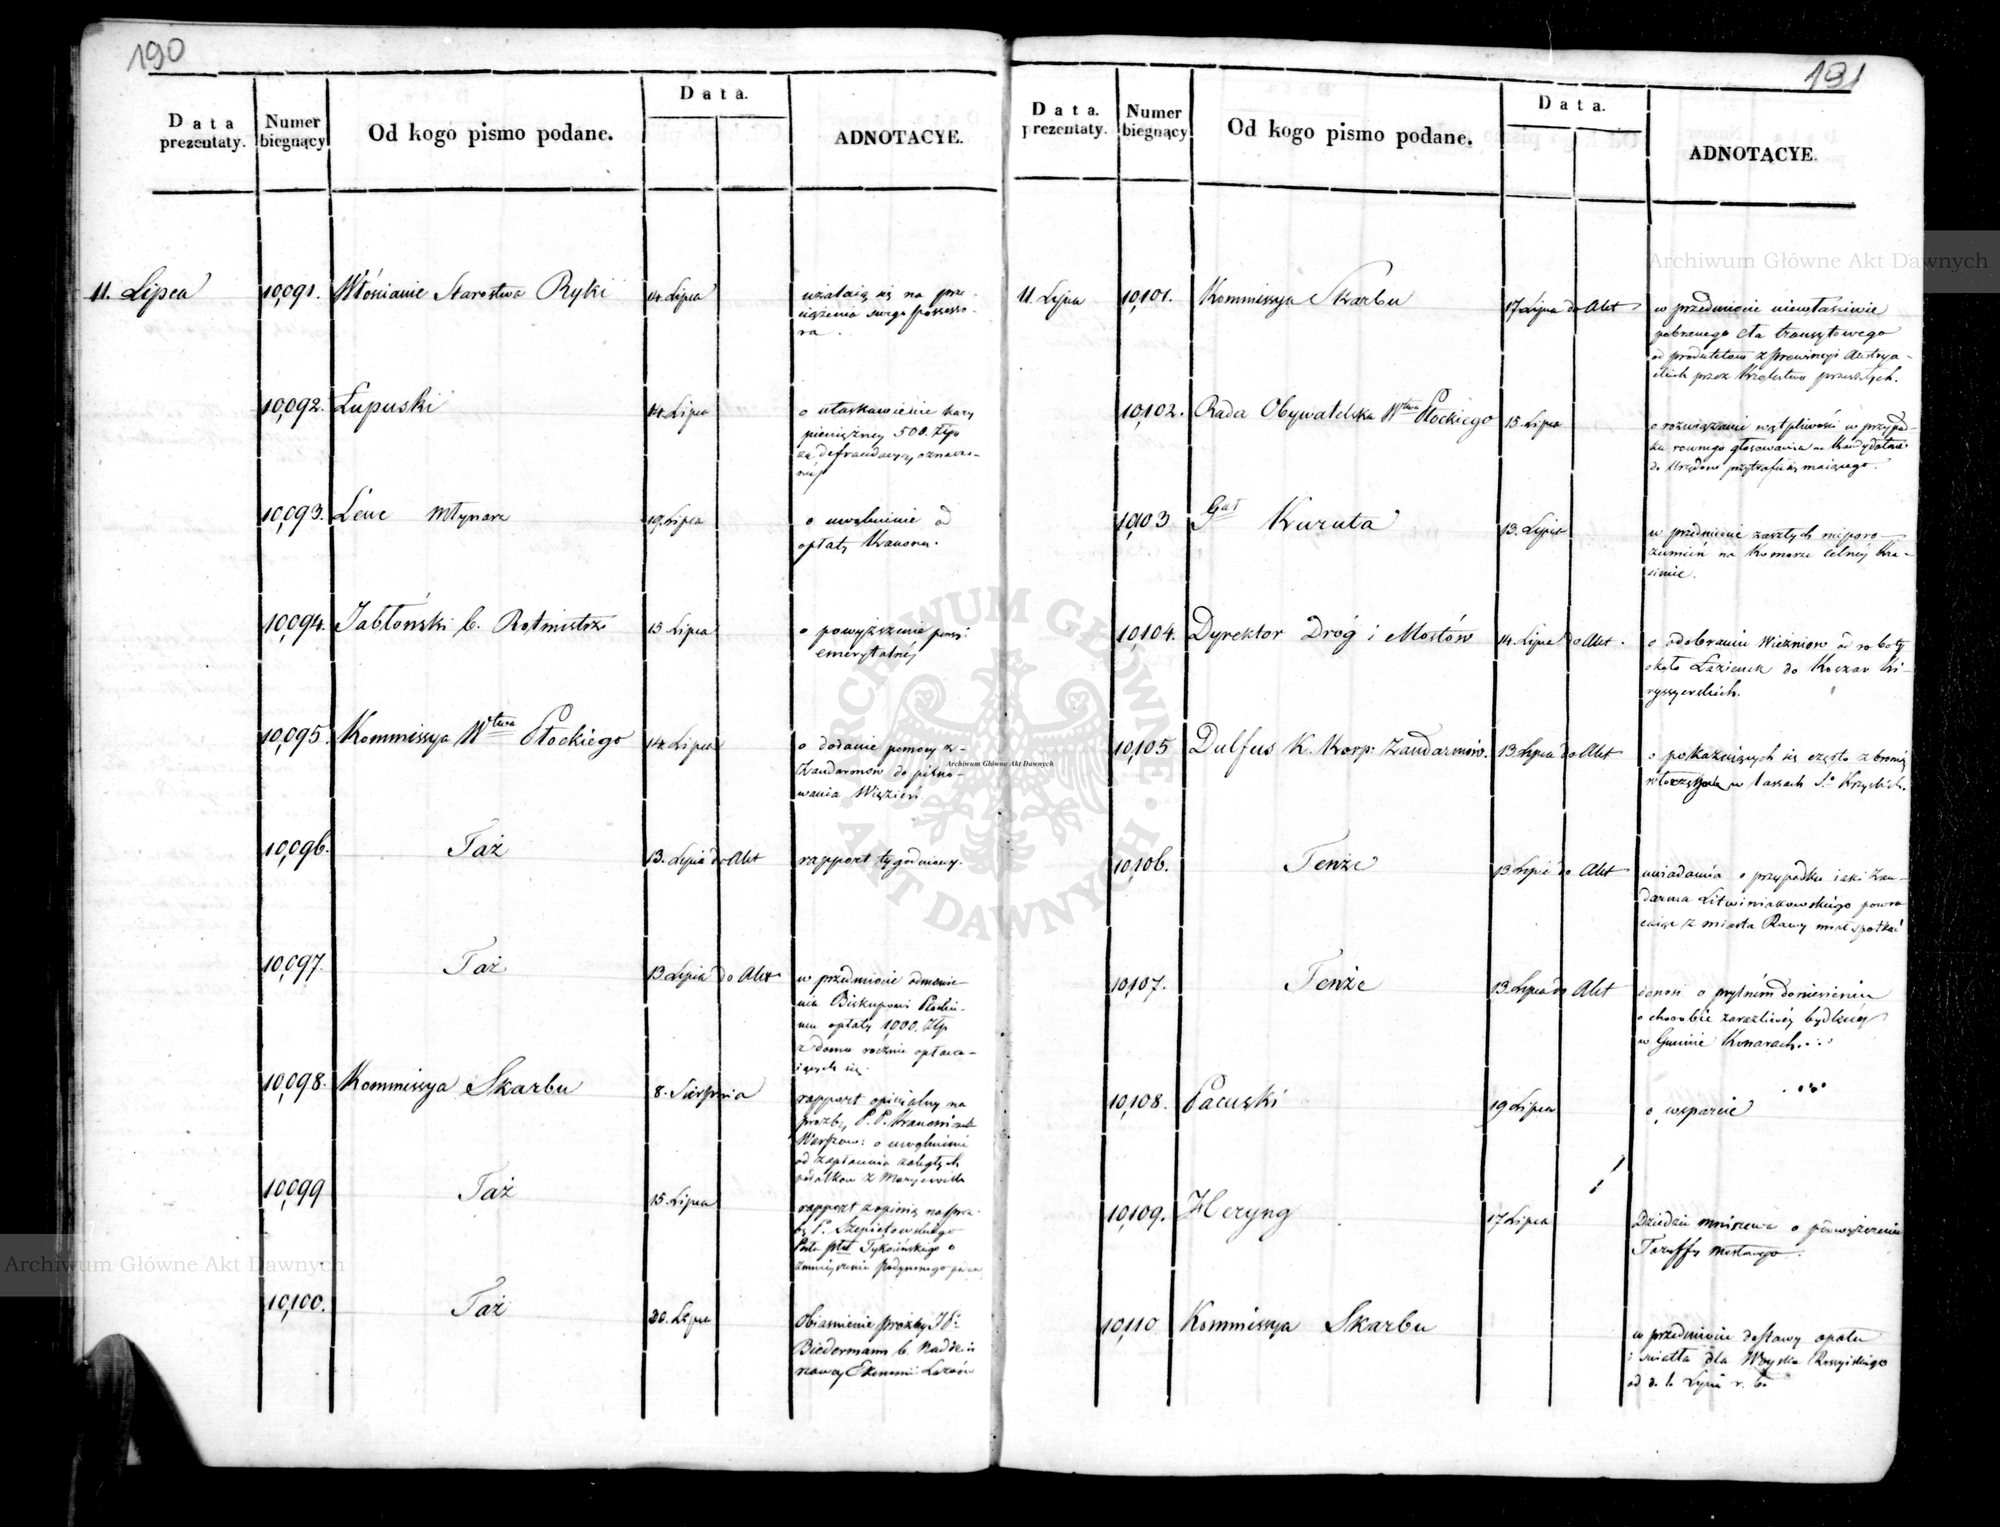 190
Data prezentaty.
Numer biegnący
Od kogo pismo podane.
Data.
ADNOTACYE.
11. Lipca 10,091. Włościanie Starostwa Ryki 14. Lipca użalaią się na prze-
ciążenia swego possesso-
ra.
10,092. Łupuski 14. Lipca o ułaskawienie kary
pieniężney 500. Złp
za defraudacyą oznaczo-
néy
10,093. Leuc Młynarz 19. Lipca o uwolnienie od
opłaty Kanonu.
10,094. Jabłoński b. Rotmistrz 13 Lipca o powyższenie pensyi
emerytalnéy
10,095. Kommissya Wtwa Płockiego 14. Lipca o dodanie pomocy z
Żandarmów do pilno-
wania Więzień
10,096. Taż 13. Lipca do Akt rapport tygodniowy.
10,097. Taż 13 Lipca do Akt w przedmiocie odmówie-
nia Biskupowi Płockie-
mu opłaty 1,000. Złp
z domu rocznie opłaca-
iących się.
10,098. Kommissya Skarbu 8. Sierpnia rapport opinialny na
prozbę P. P. Kanoniczek
Warszaw: o uwolnienie
od zapłacenia zaległych
podatków z Marywilla
10,099 Taż 15. Lipca rapport z opinią na proz-
bę P. Szepietowskiego
Posła ptu Tykocińskiego o
zmnieyszenie Podymnego
10,100. Taż 20. Lipca Obiasnienie prozby JP.
Biedermann b. Naddzie-
rżawcy Ekonomii Łaznów
191
Data. prezentaty.
Numer biegnący
Od kogo pismo podane.
Data.
ADNOTACYE.
11. Lipca 10,101. Kommissya Skarbu 17 Lipca do Akt w przedmiocie niewłaściwie
pobranego cła tranzytowego
od produktów z Prowincyi Austrya-
ckich przez Królestwo przeszłych.
10,102. Rada Obywatelska Wtwa Płockiego 15. Lipca o rozwiązanie wątpliwości w przypad-
ku rownego głosowania na Kandydatów
do Urzędów przytrafić się maiącego.
10,103 Gał Kuruta 13. Lipca w przedmiocie zaszłych nieporo-
zumień na Komorze celnéy
10,104. Dyrektor Dróg i Mostów 14. Lipca do Akt. o odebraniu Więźniów od roboty
około Łazienek do Koszar Ki-
ryssyerskich.
10,105 Dulfus K. Korp: Żandarmów. 13. Lipca do Akt o pokazuiących się często z bronią
włóczęgach w lasach S. Krzyskich.
10,106. Tenże 13 Lipca do Akt uwiadamia o przypadku iaki Żan-
darma Litwiniakowskiego powra-
caiąc z miasta Rawy miał spotkać
10,107. Tenże 13. Lipca do Akt donosi o mylném doniesieniu
o chorobie zaraźliwéy bydlęcéy
w Gminie Konarach.
10,108. Pacuski 19 Lipca o wsparcie
10,109. Heryng 17 Lipca Dziedzic Mniszewa o powyższenie
Taryffy mostowego.
10,110 Kommissya Skarbu w przedmiocie dostawy opału
i swiatła dla Woyska Rossyiskiego
od d. 1. Lipca r. b.
Archiwum Główne Akt Dawnych
Archiwum Główne Akt Dawnych
Archiwum Główne Akt Dawnych
ARCHIWUM GŁÓWNE · AKT DAWNYCH ·